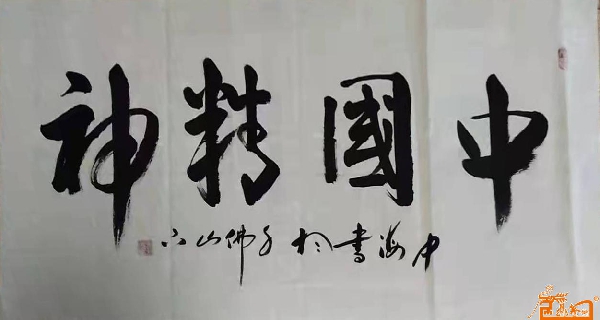 中國精神
中海書於千佛山下